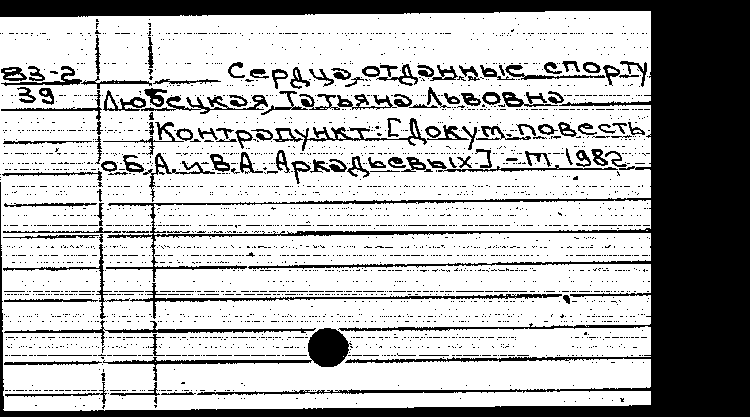 83-2 Сердца, отданные спорту
39 Любецкая, Татьяна Львовна
Контрапункт: [Докум. повесть
об А. и В.А. Аркадьевых] - М. 1982